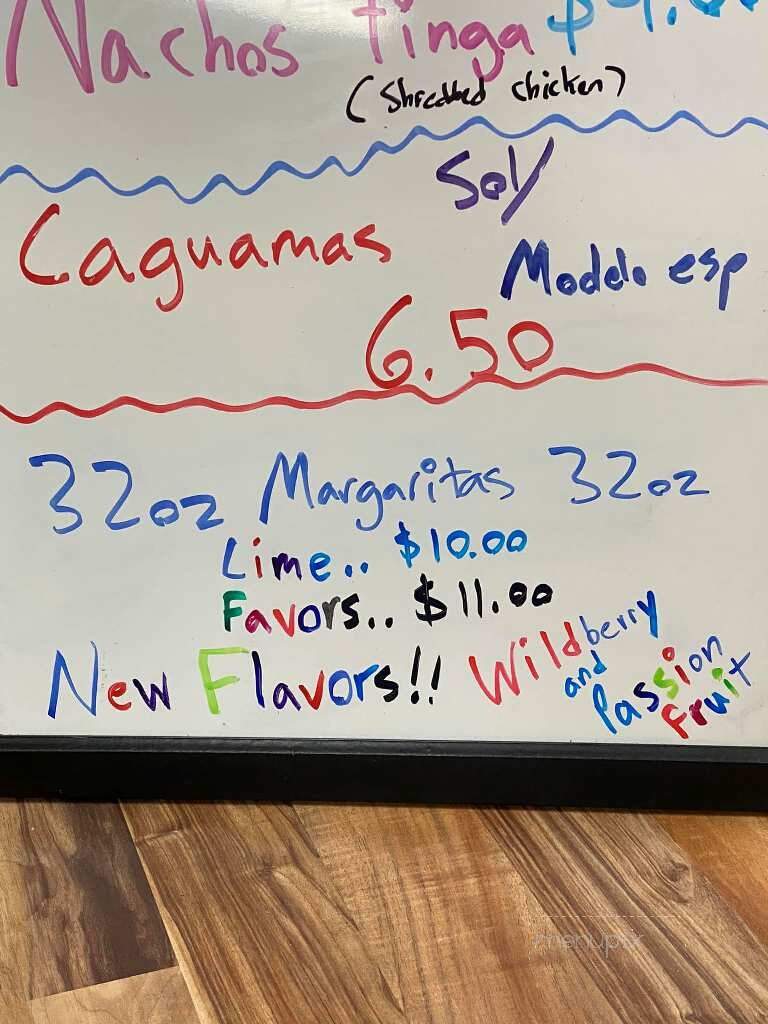 Nachos Tinga
(Shredded chicken)
Sol/
Caguamas
Modelo esp
6.50
32oz Margaritas 32oz
Lime.. $10.00
Favors.. $11.00
New Flavors!! Wildberry
and
Passion
Fruit
menupix